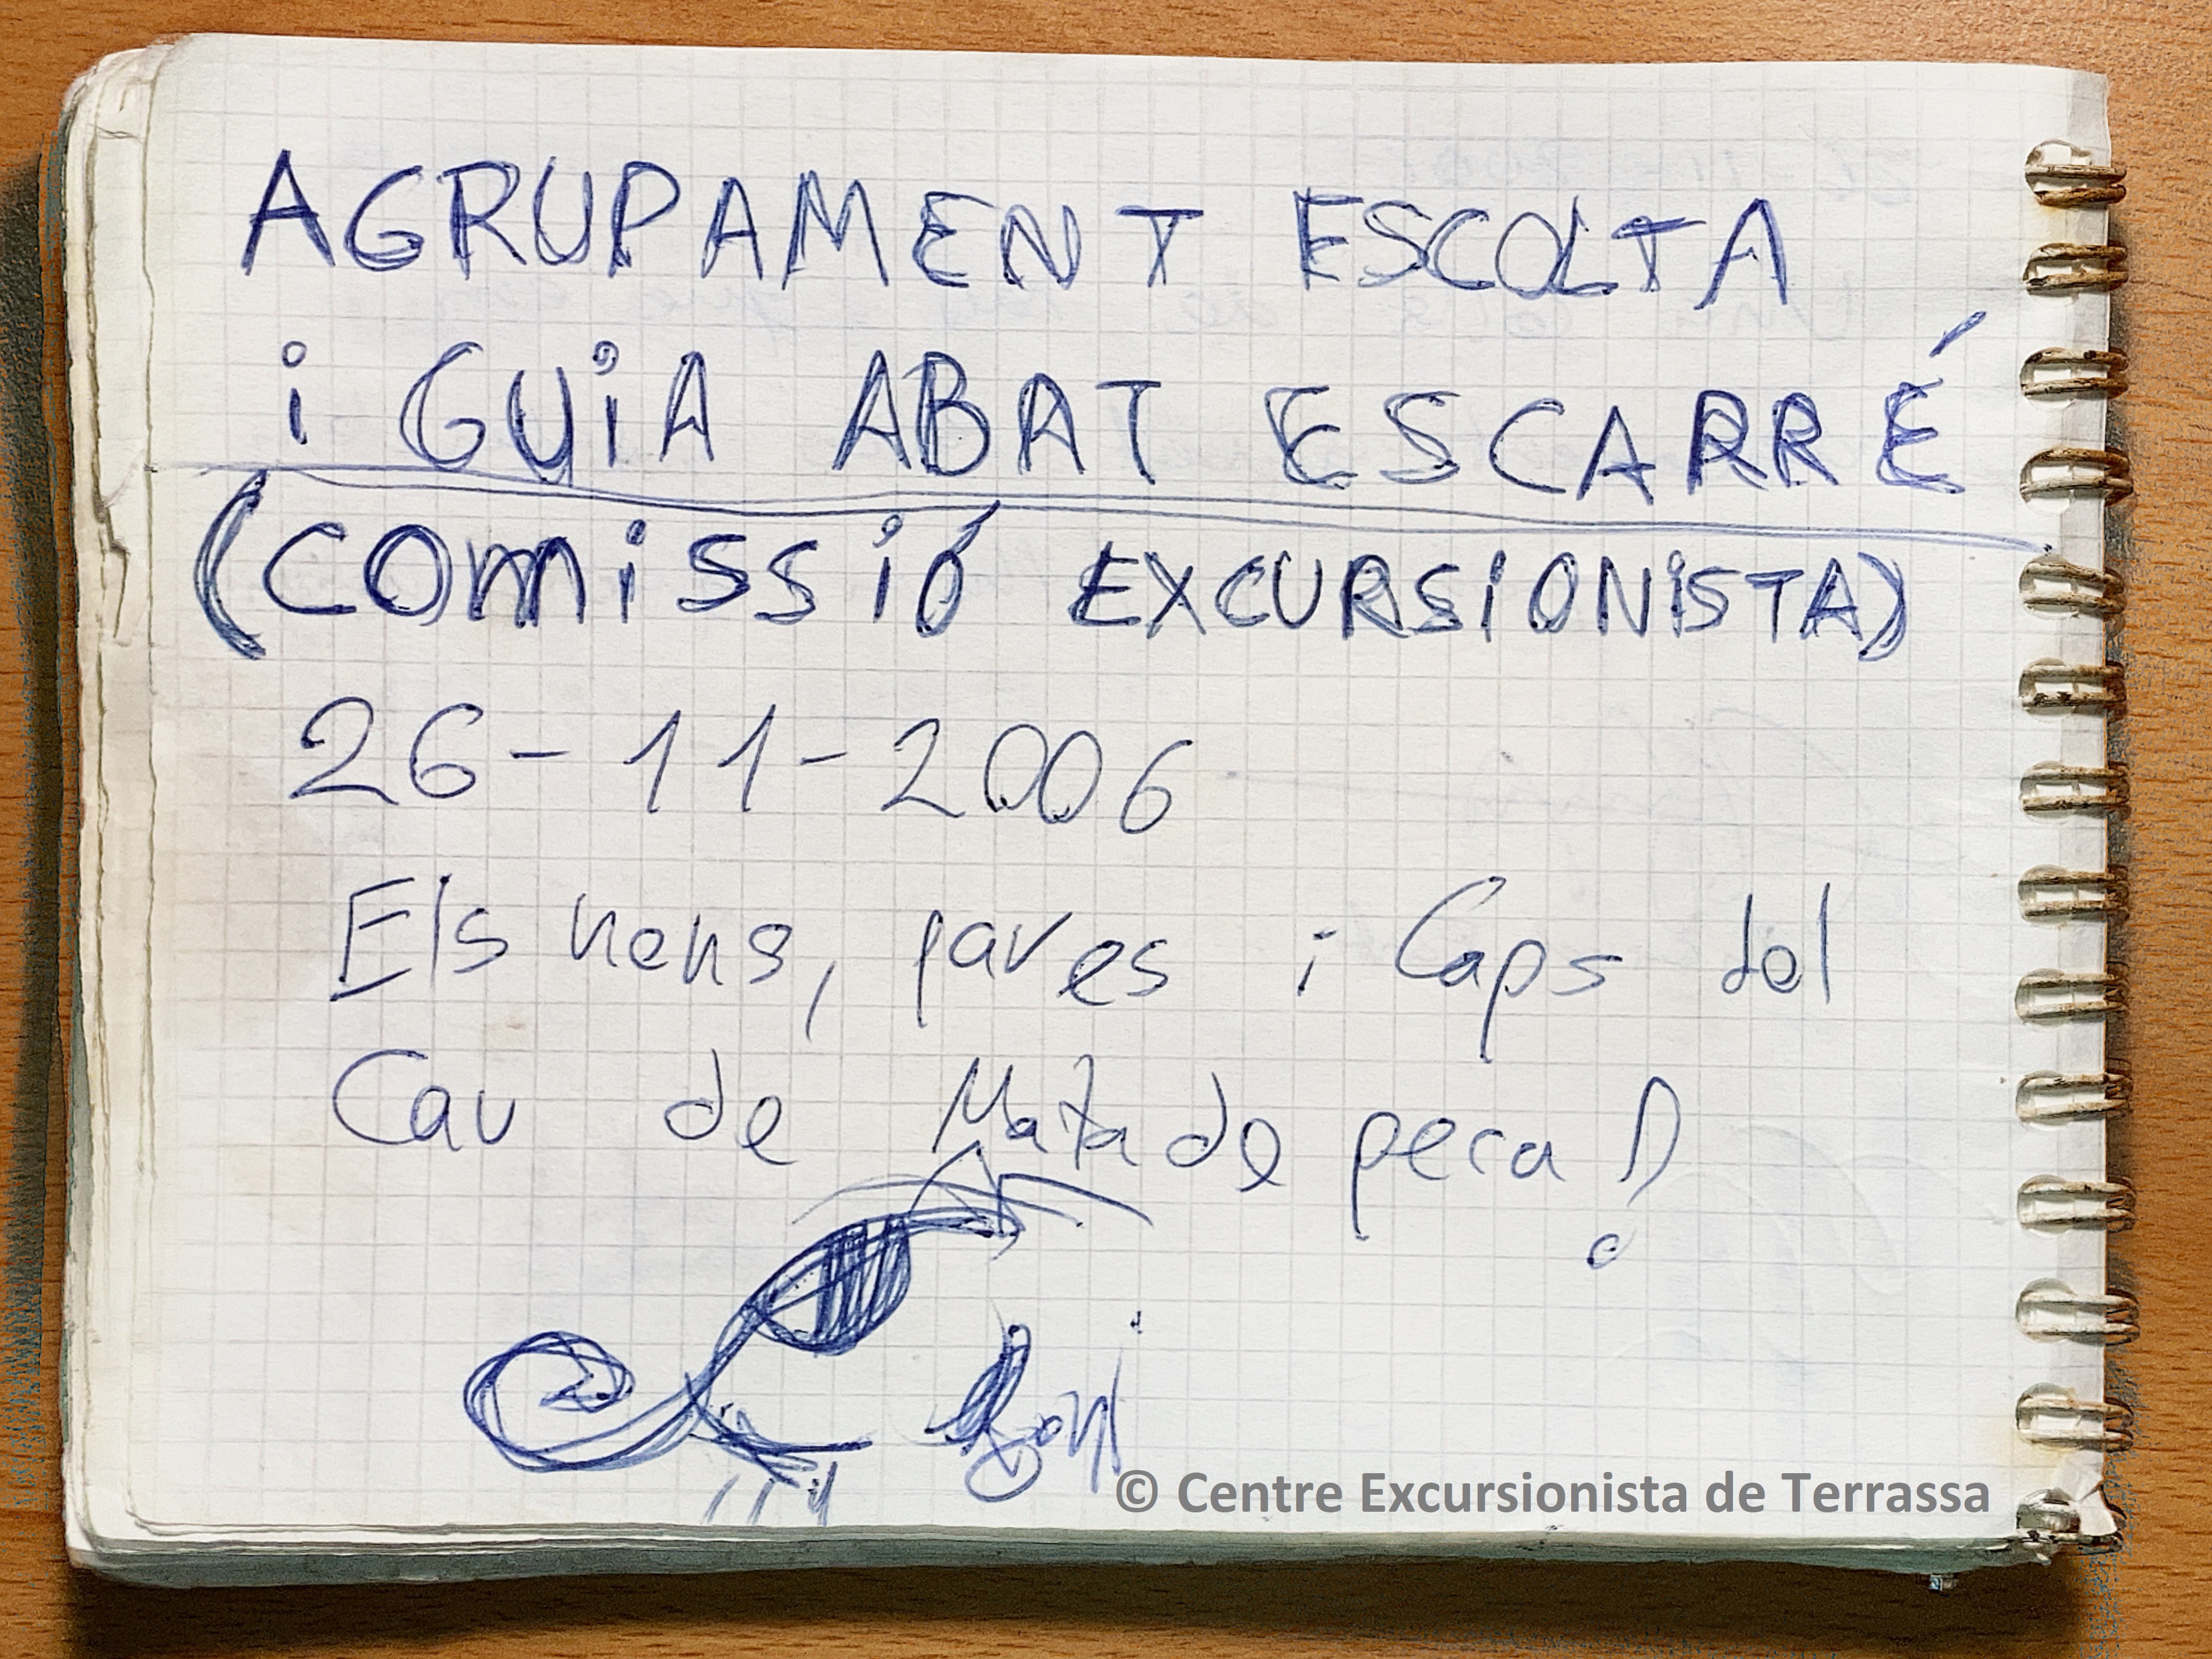 AGRUPAMENT ESCOLTA
i GUiA ABAT ESCARRÉ
(COMiSSiÓ EXCURSiONiSTA)
26-11-2006
Els nens, pares i Caps del
Cau de Matadepera!
© Centre Excursionista de Terrassa